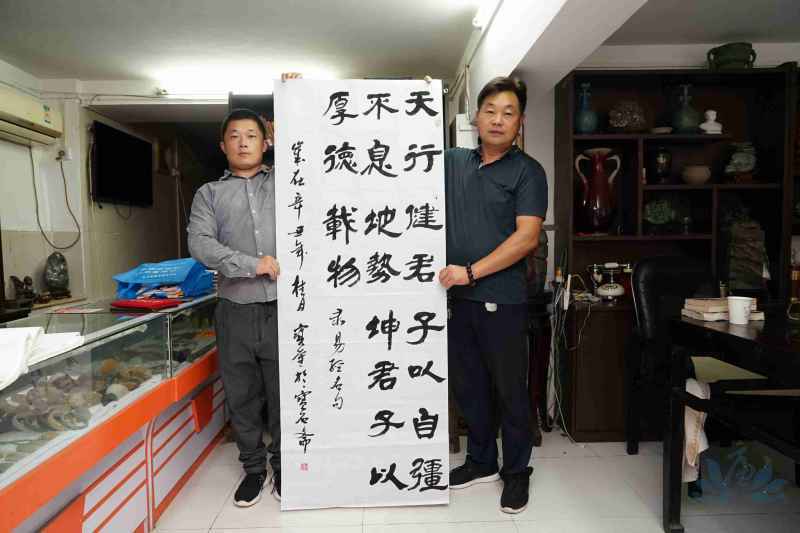 天行健君子以自彊
不息地勢坤君子以
厚德載物
录易經名句
歲在辛丑年桂月寶華於寶石齋